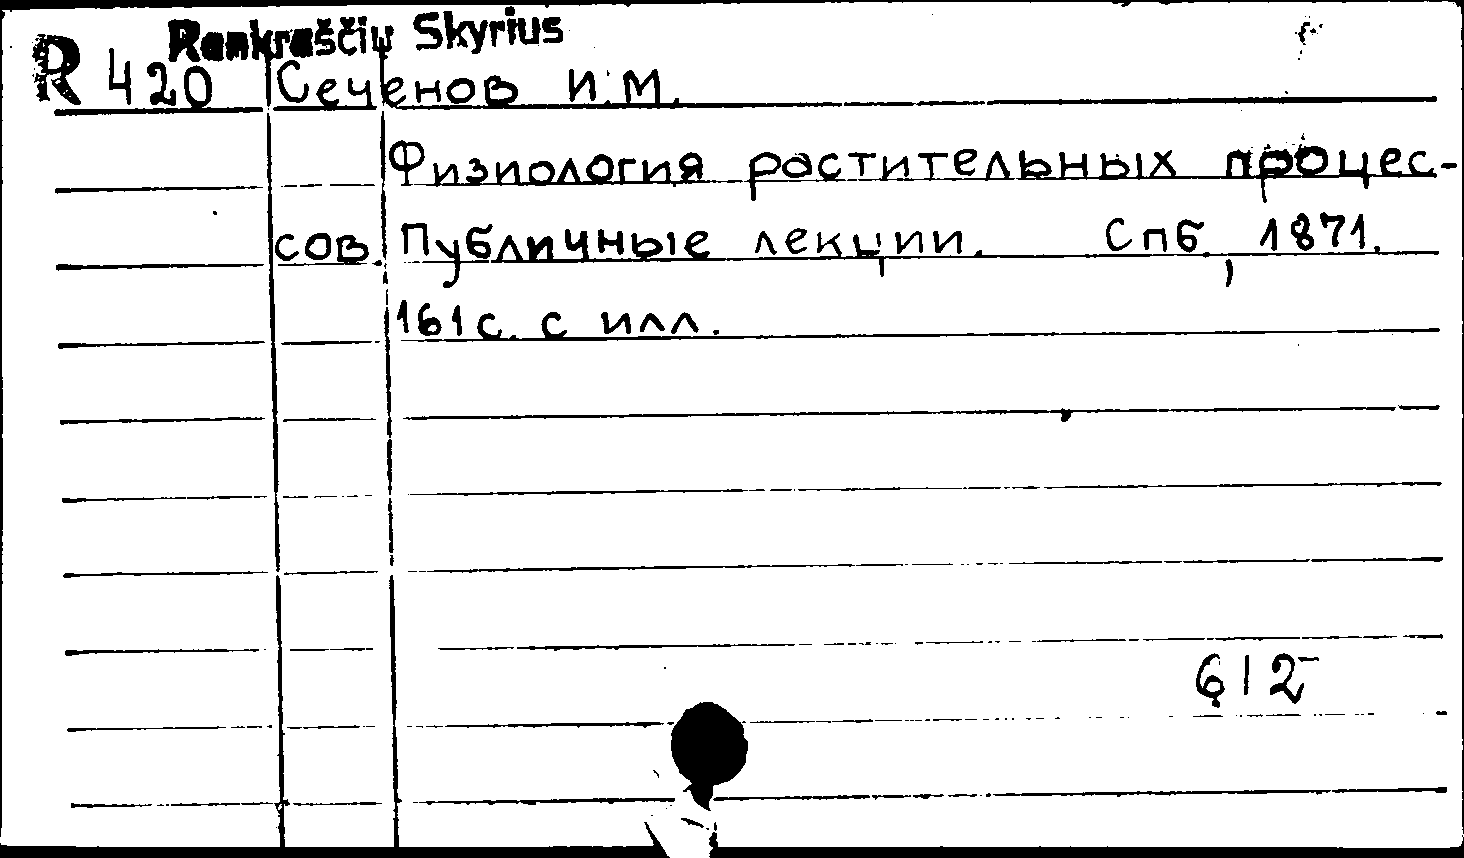 Rankraščių Skyrius
R 420 Сеченов И.М.
Физиология растительных процес-
сов. Публичные лекции. Спб, 1871.
161с. с илл.
612